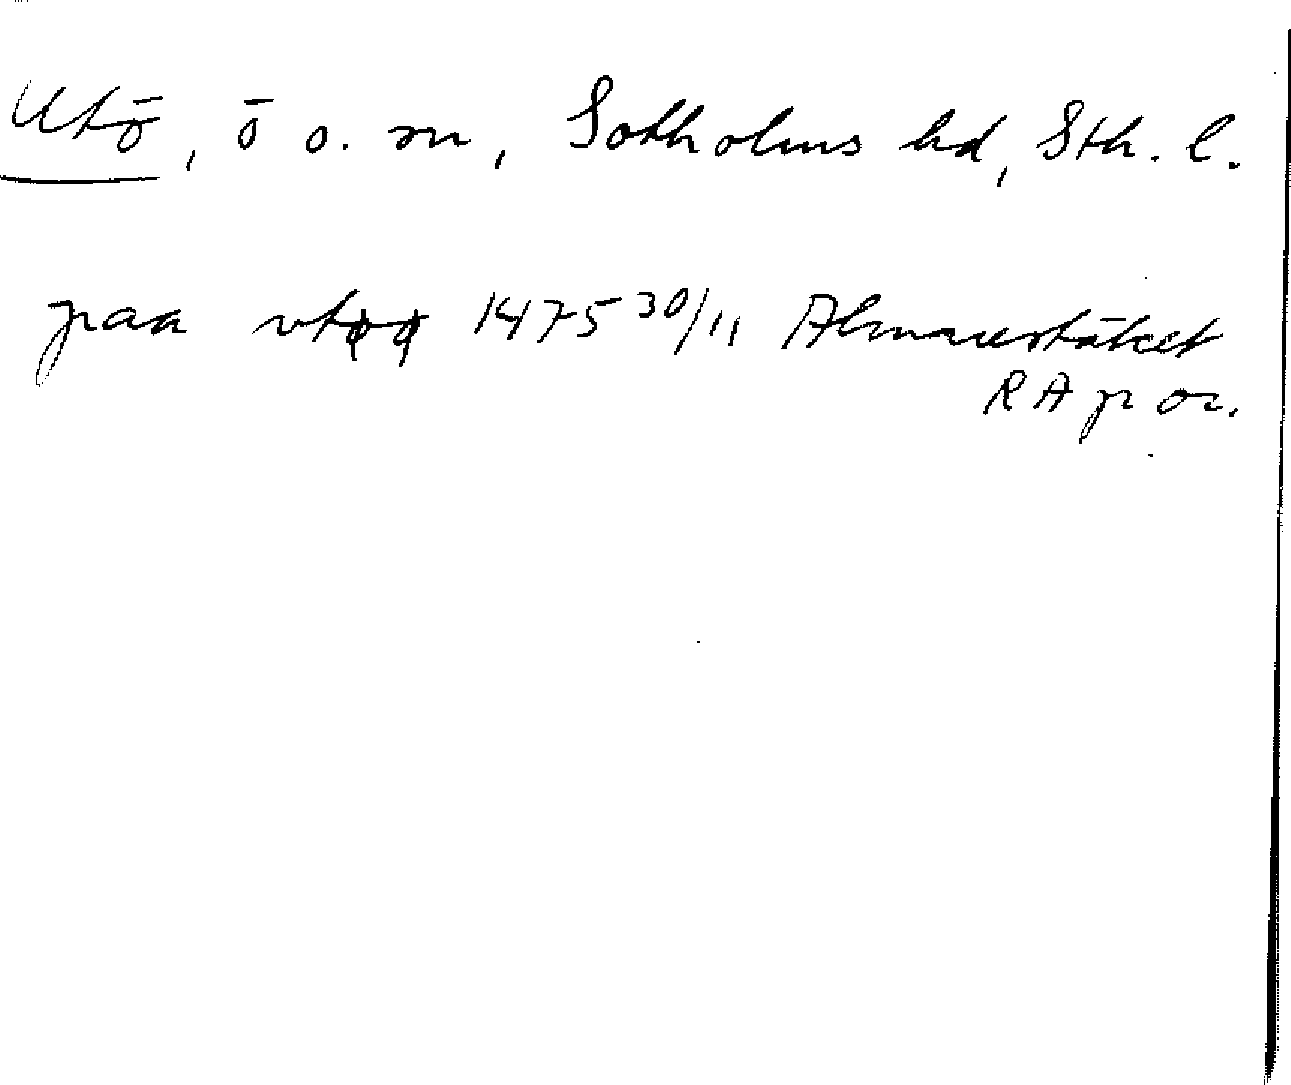 Utö, ö o. m, Sotholms hd, Sth. l.
paa vtøø 1475 30/11 Almarestäket
RA p or.